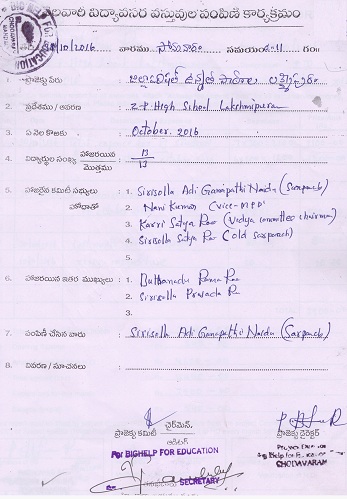 నెలవారీ విద్యావసర వస్తువుల పంపిణీ కార్యక్రమం
/10/2016 వారము సోమవారం సమయం గం॥
ప్రాజెక్టు పేరు : జిల్లా పరిషత్ ఉన్నత పాఠశాల లక్ష్మీపురం
2. ప్రదేశము / ఆవరణ : Z.P High School Lakshmipuram
3. ఏ నెల కొరకు : October. 2016
4. విద్యార్థుల సంఖ్య హాజరయిన : 13
మొత్తము 13
5. హాజరైన కమిటీ సభ్యులు : 1. Sirisolla Adi Ganapathi Naidu (Sarpanch)
హోదాతో 2. Nani Kumar (vice-MPP)
3. Karri Satya Rao (Vidya committee chairman)
4. Sirisolla Satya Rao (old sarpanch)
5.
6. హాజరయిన ఇతర ముఖ్యులు : 1. Rama Rao
2. Sirisolla Prasada R
3.
7. పంపిణీ చేసిన వారు : Sirisolla Adi Ganapathi Naidu (Sarpanch)
8. వివరణ / సూచనలు :
ఛైర్మెన్,
ప్రాజెక్టు కమిటీ
ఆడిటర్
ప్రాజెక్టు డైరెక్టర్
For BIGHELP FOR EDUCATION
Big Help for Education
CHODAVARAM
SECRETARY